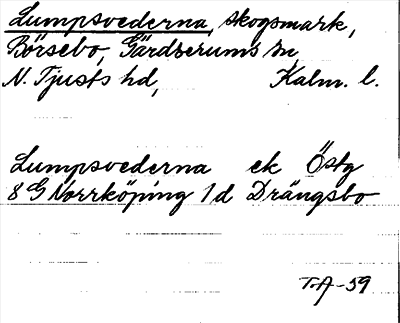 Lumpsvederna, skogsmark,
Börsebo, Gärdserums sn
N. Tjusts hd, Kalm. l.
Lumpsvederna ek Östg
8 G Norrköping 1d Drängsbo
T.A-59